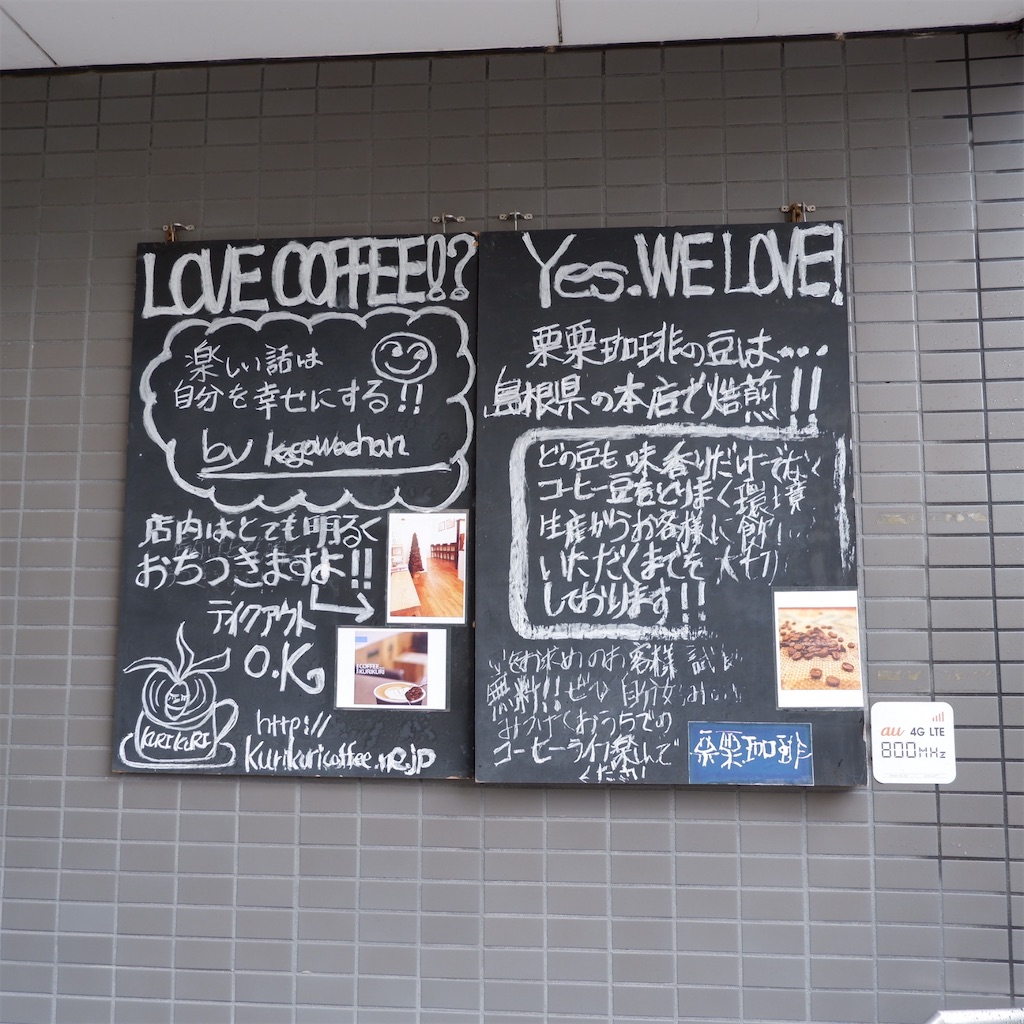 LOVE COFFEE!!?
楽しい話は
自分を幸せにする!!
by kagawachan
店内はとても明るく
おちつきますよ!!
テイクアウト
O.K
COFFEE
KURIKURI
KURIKURI
http://
kurikuricoffee.ne.jp
Yes. WE LOVE!
栗栗珈琲の豆は・・・
島根県の本店で焙煎!!
どの豆も味香りだけでなく
コーヒー豆をとりまく環境
生産からお客様に飲
いただくまでを大切
しております!!
お求めのお客様試
無料!!ぜひ自分
みつけておうちでの
コーヒーライフ楽しんで
ください
栗栗珈琲
au 4G LTE
800MHz